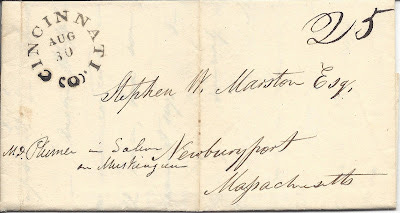 CINCINNATI. O
AUG
30
25
Stephen W. Marston Esq.
Newburyport
Massachusetts
Plumer in Salem
on Muskingum